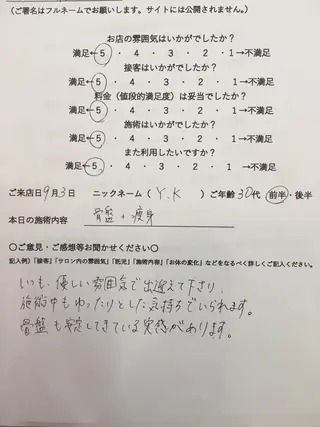 (ご署名はフルネームでお願いします。サイトには公開されません。)
お店の雰囲気はいかがでしたか？
満足←5 ・ 4 ・ 3 ・ 2 ・ 1→不満足
接客はいかがでしたか？
満足←5 ・ 4 ・ 3 ・ 2 ・ 1→不満足
料金（値段的満足度）は妥当でしたか？
満足←5 ・ 4 ・ 3 ・ 2 ・ 1→不満足
施術はいかがでしたか？
満足←5 ・ 4 ・ 3 ・ 2 ・ 1→不満足
また利用したいですか？
満足←5 ・ 4 ・ 3 ・ 2 ・ 1 →不満足
ご来店日9月3日 ニックネーム（ Y.K ）ご年齢30代 前半・後半
本日の施術内容 骨盤+痩身
〇ご意見・ご感想等お聞かせください〇
記入例）「接客」「サロン内の雰囲気」「託児」「施術内容」「お体の変化」などをなるべく詳しくご記入ください。
いつも、優しい雰囲気で出迎えて下さり、
施術中もゆったりとした気持ちでいられます。
骨盤も安定してきている実感があります。